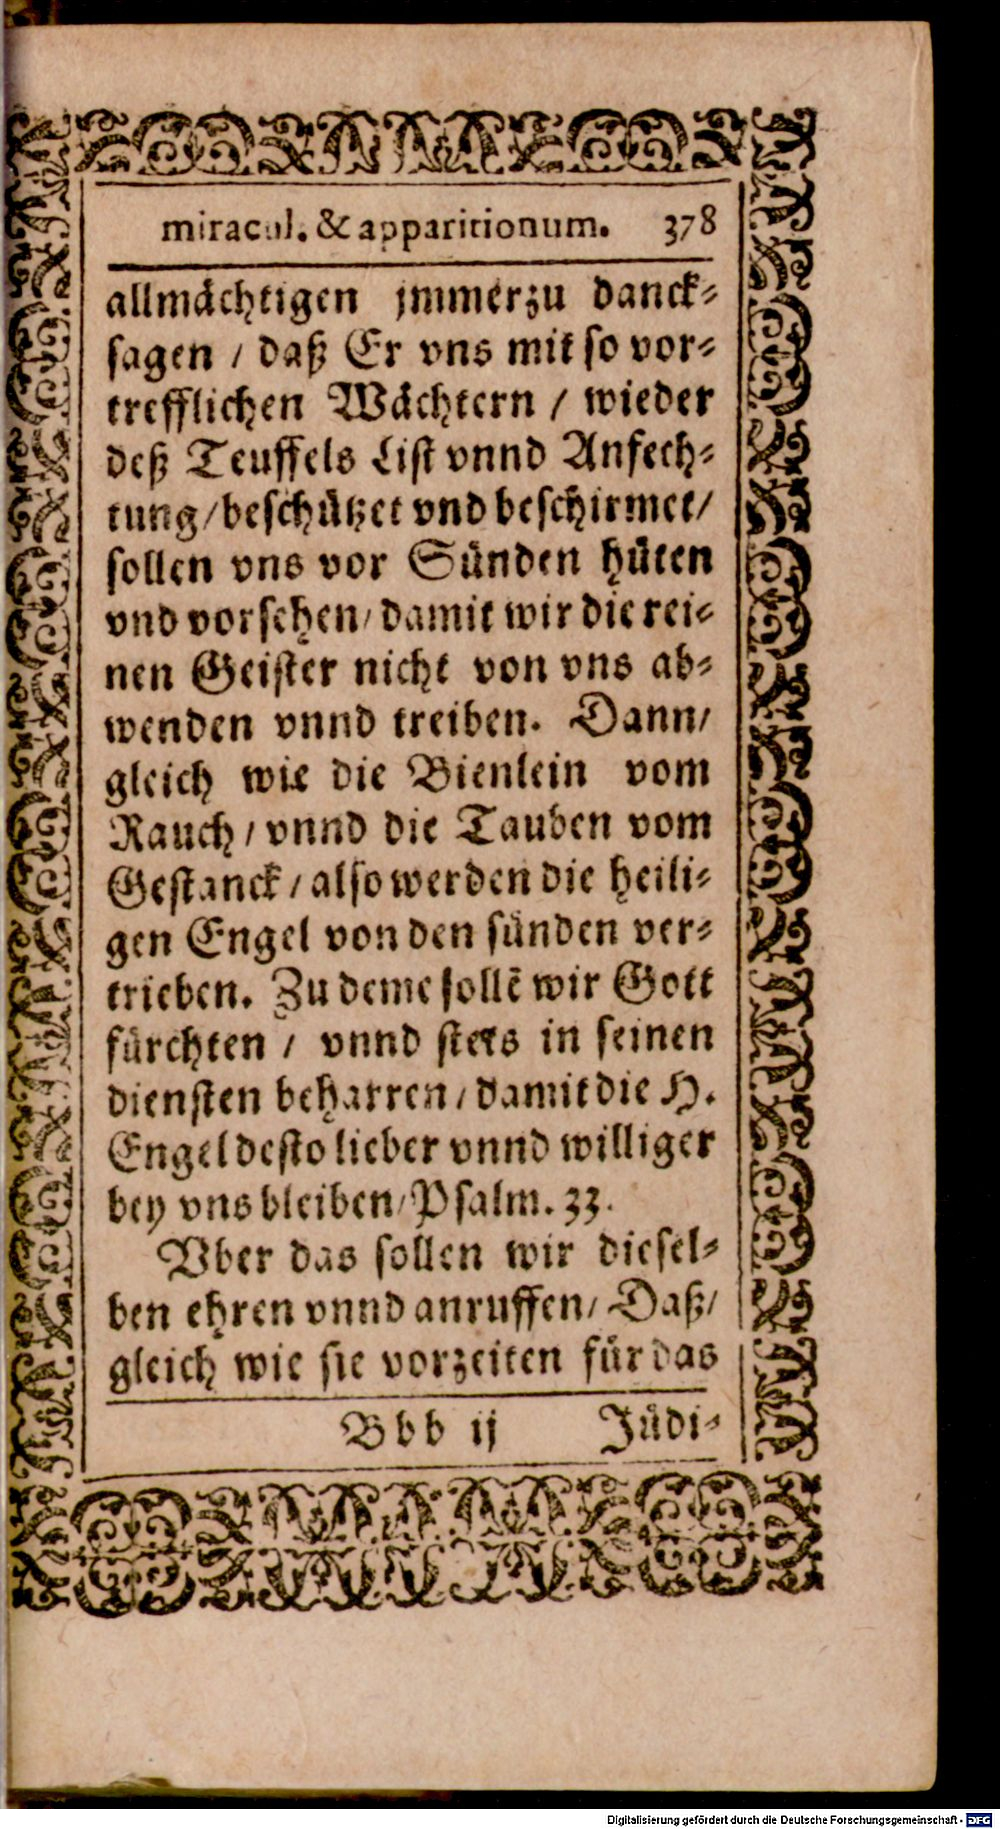 miracul. & apparitionum. 378
allmächtigen jmmerzu danck-
sagen / daß Er vns mit so vor-
trefflichen Wächtern / wieder
deß Teuffels List vnnd Anfech-
tung / beschützet vnd beschirmet /
sollen vns vor Sünden hüten
vnd vorsehen / damit wir die rei-
nen Geister nicht von vns ab-
wenden vnnd treiben. Dann /
gleich wie die Bienlein vom
Rauch / vnnd die Tauben vom
Gestanck / also werden die heili-
gen Engel von den sünden ver-
trieben. Zu deme sollẽ wir Gott
fürchten / vnnd stets in seinen
diensten beharren / damit die H.
Engel desto lieber vnnd williger
bey vns bleiben / Psalm. 33.
Vber das sollen wir diesel-
ben ehren vnnd anruffen / Daß /
gleich wie sie vorzeiten für das
Bbb ij Jüdi-
Digitalisierung gefördert durch die Deutsche Forschungsgemeinschaft - DFG